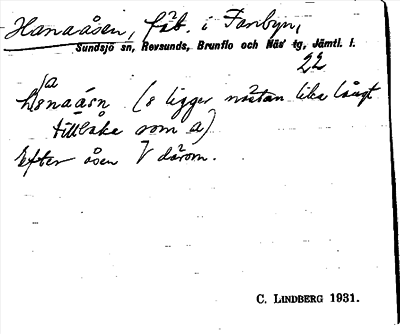 Hanaåsen, fäb. i Fanbyn,
Sundsjö sn, Revsunds, Brunflo och Näs tg, Jämtl. l.
22
ja
hɛnaásn (s ligger nästan lika långt
tillbaka som a)
Efter åsen V därom.
C. LINDBERG 1931.